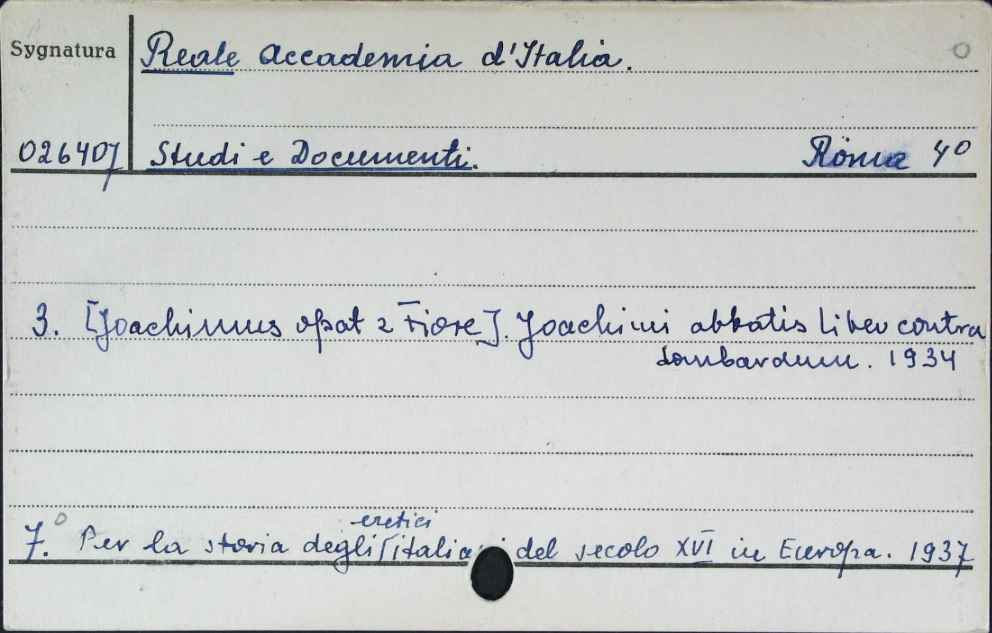 Sygnatura Reale Accademia d'Italia.
026407 Studi e Documenti. Roma 4°
3. [Joachimus opat z Fiore]. Joachimi abbatis liber contra
Lombardum. 1934
eretici
7. Per la storia degli italiani del secolo XVI in Europa. 1937